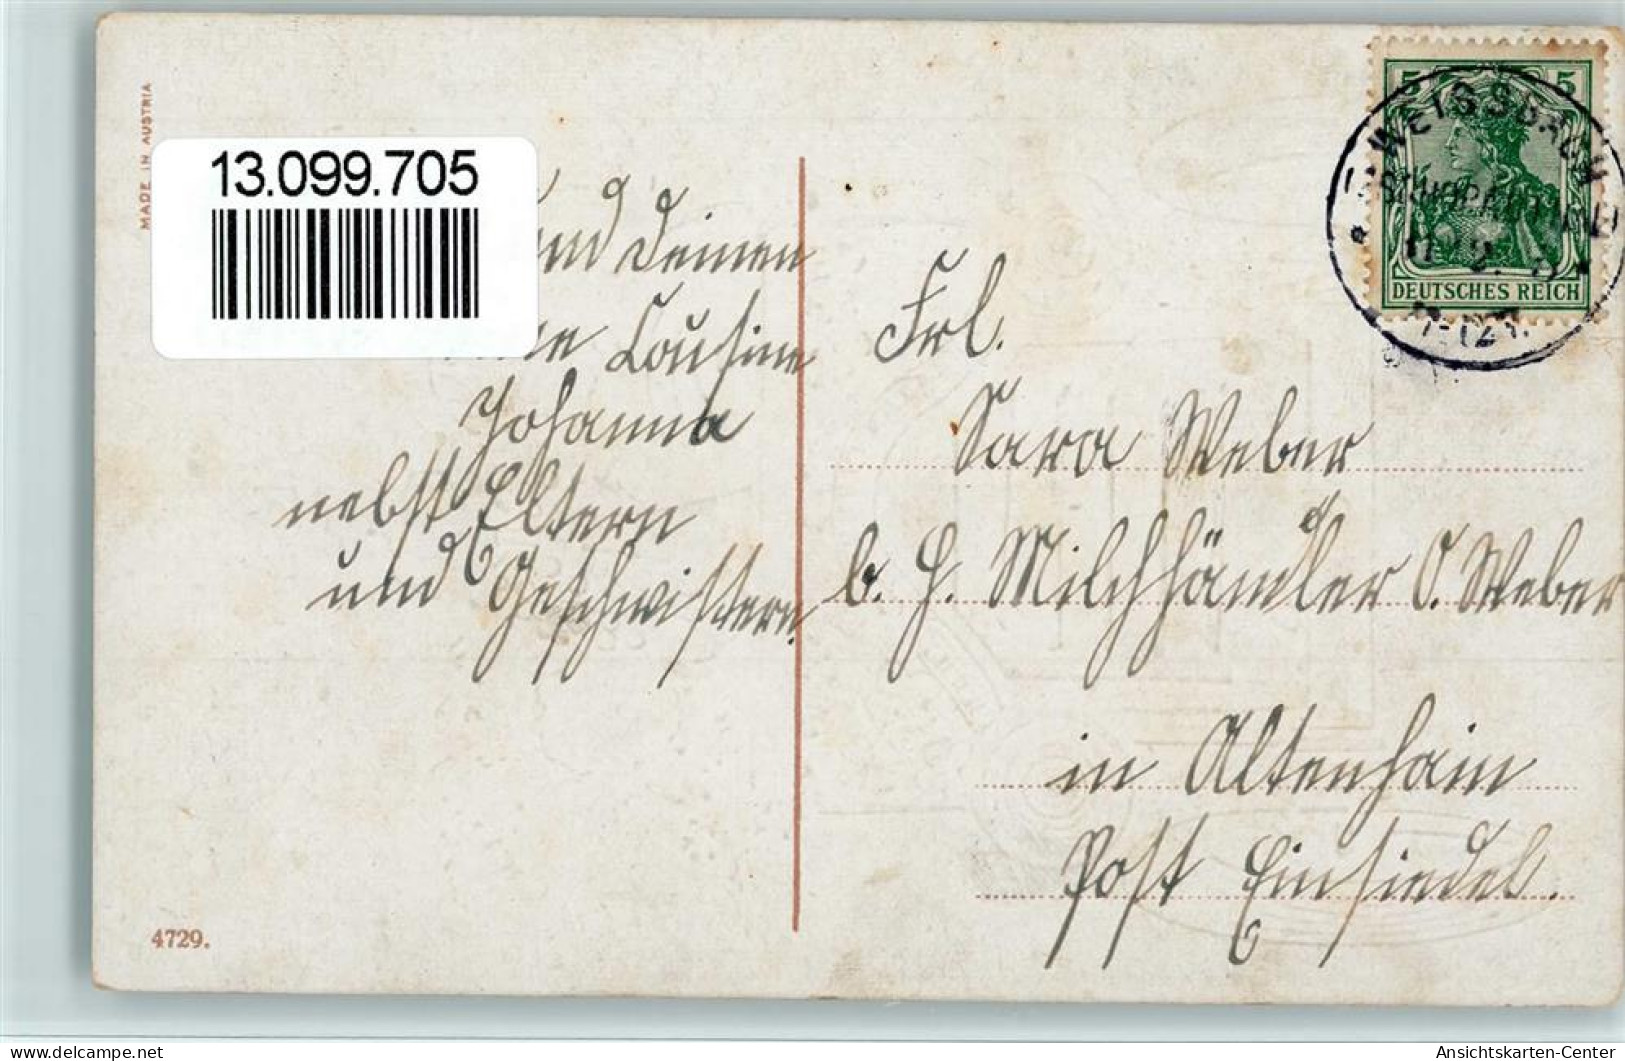 MADE IN AUSTRIA
13.099.705
und Deinen
Cousine
Johanna
nebst Eltern
und Geschwistern.
4729.
5 5
DEUTSCHES REICH
WEISSBACH
Frl.
Sara Weber
b. H. Milchhändler O. Weber
in Altenhain
Post Einsiedel.
Ansichtskarten-Center
delcampe.net